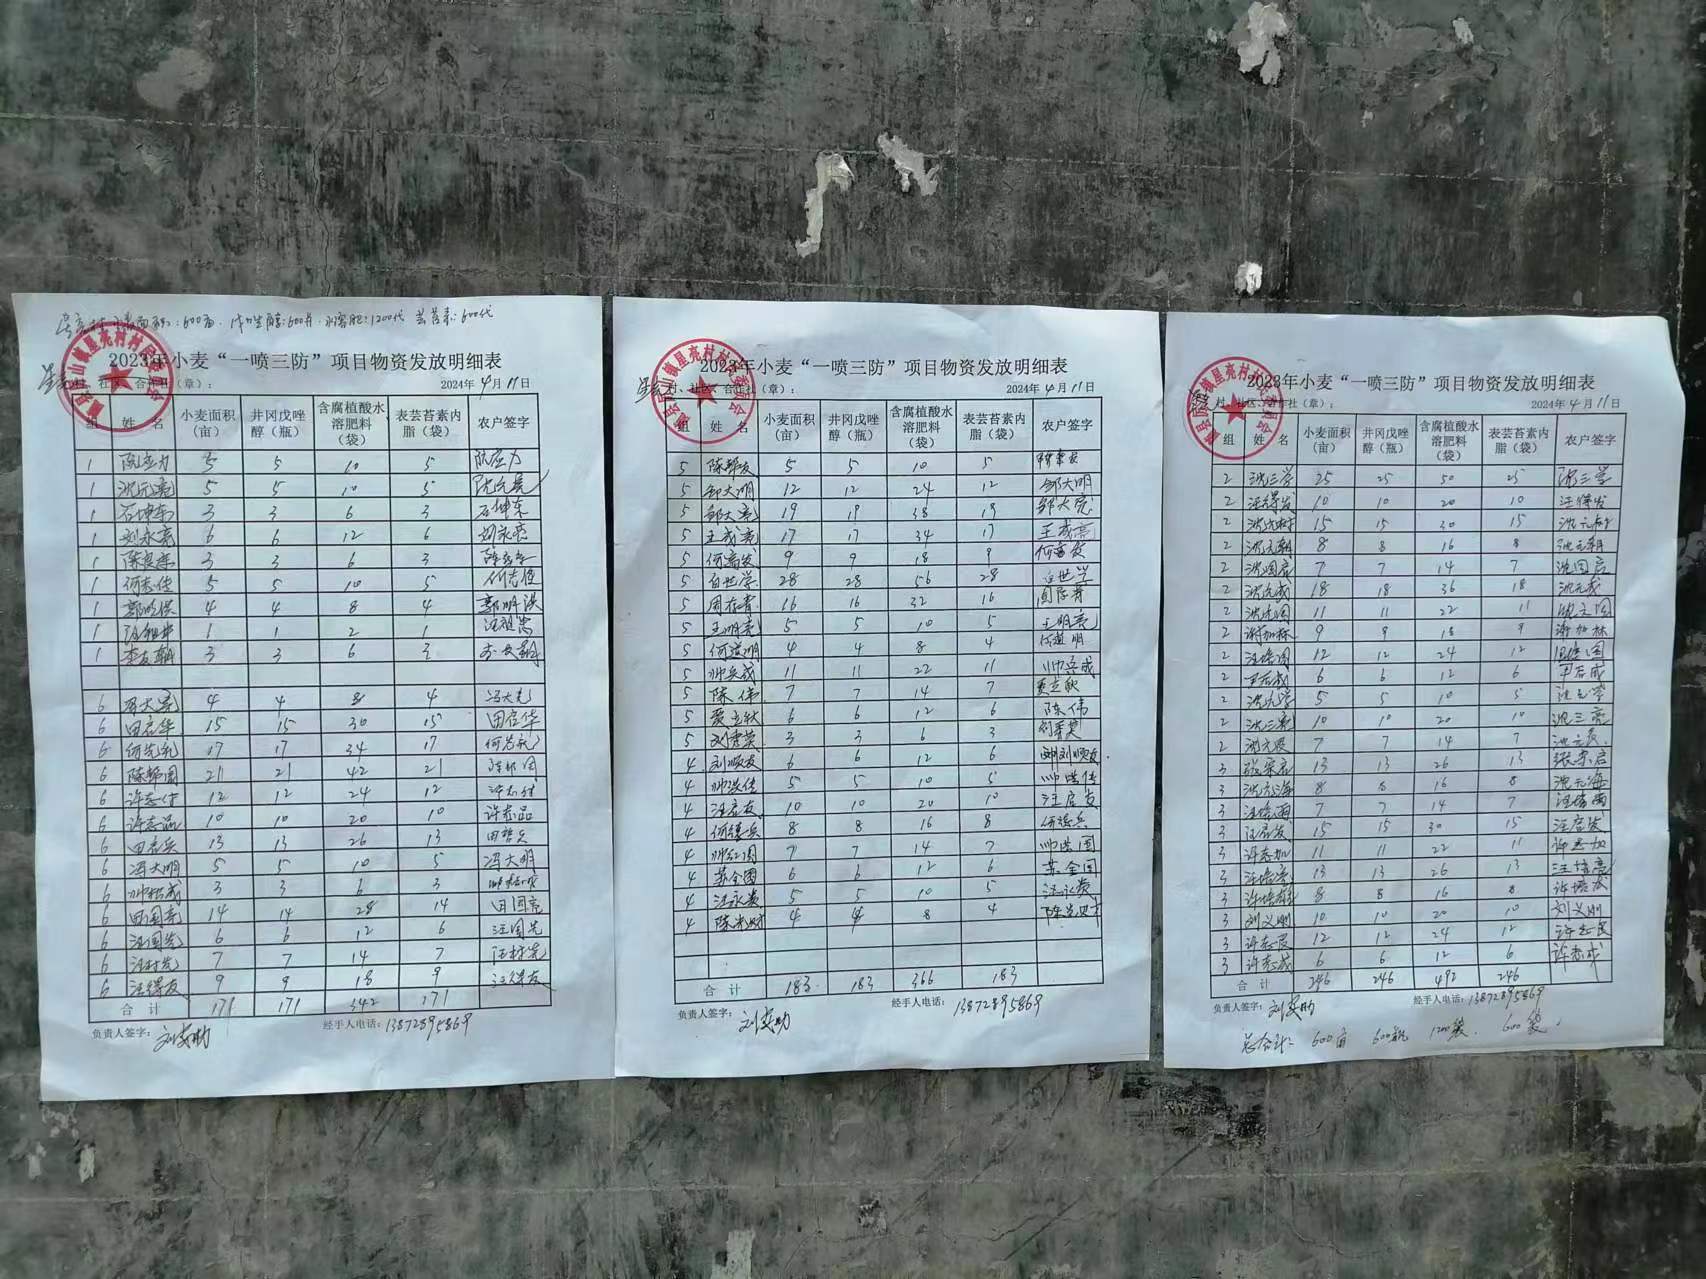 小麦面积:600亩. 井冈戊唑醇:600井. 水溶肥:1200代 芸苔素:600代
2023年小麦“一喷三防”项目物资发放明细表
星亮村、社区、合作社（章）： 2024年4月11日
组 姓 名 小麦面积（亩） 井冈戊唑醇（瓶） 含腐植酸水溶肥料（袋） 表芸苔素内脂（袋） 农户签字
1 阮应力 5 5 10 5 阮应力
1 沈元亮 5 5 10 5 沈元亮
1 石坤东 3 3 6 3 石坤东
1 刘永亮 6 6 12 6 刘永亮
1 3 3 6 3
1 何志俊 5 5 10 5 何志俊
1 郭明洪 4 4 8 4 郭明洪
1 1 1 2 1
1 李友朝 3 3 6 3 李友朝
6 冯大亮 4 4 8 4 冯大亮
6 田启华 15 15 30 15 田启华
6 何先礼 17 17 34 17 何先礼
6 陈邦国 21 21 42 21 陈邦国
6 许志付 12 12 24 12 许志付
6 许志品 10 10 20 10 许志品
6 13 13 26 13
6 冯大明 5 5 10 5 冯大明
6 3 3 6 3
6 田国亮 14 14 28 14 田国亮
6 汪国先 6 6 12 6 汪国先
6 汪材先 7 7 14 7 汪材先
6 汪得友 9 9 18 9 汪得友
合 计 171 171 342 171
负责人签字： 经手人电话：13872895869
2023年小麦“一喷三防”项目物资发放明细表
星亮村、社区、合作社（章）： 2024年4月11日
组 姓 名 小麦面积（亩） 井冈戊唑醇（瓶） 含腐植酸水溶肥料（袋） 表芸苔素内脂（袋） 农户签字
5 5 5 10 5
5 邹大明 12 12 24 12 邹大明
5 邹大亮 19 19 38 19 邹大亮
5 王成亮 17 17 34 17 王成亮
5 何富发 9 9 18 9 何富发
5 28 28 56 28
5 周存青 16 16 32 16 周存青
5 王明亮 5 5 10 5 王明亮
5 何道明 4 4 8 4 何道明
5 帅兵成 11 11 22 11 帅兵成
5 陈伟 7 7 14 7 贾立秋
5 贾立秋 6 6 12 6 陈伟
5 刘秀英 3 3 6 3 刘秀英
4 刘顺友 6 6 12 6 刘顺友
4 帅洪俊 5 5 10 5 帅洪俊
4 汪启友 10 10 20 10 汪启友
4 何德兵 8 8 16 8 何德兵
4 7 7 14 7
4 苏全国 6 6 12 6 苏全国
4 汪永贵 5 5 10 5 汪永贵
4 陈光财 4 4 8 4 陈光财
合 计 183 183 366 183
负责人签字： 经手人电话：13872895869
2023年小麦“一喷三防”项目物资发放明细表
村、社区、合作社（章）： 2024年4月11日
组 姓 名 小麦面积（亩） 井冈戊唑醇（瓶） 含腐植酸水溶肥料（袋） 表芸苔素内脂（袋） 农户签字
2 沈三学 25 25 50 25 沈三学
2 汪得发 10 10 20 10 汪得发
2 沈元树 15 15 30 15 沈元树
2 沈元朝 8 8 16 8 沈元朝
2 沈国启 7 7 14 7 沈国启
2 沈元成 18 18 36 18 沈元成
2 沈元国 11 11 22 11 沈元国
2 谢加林 9 9 18 9 谢加林
2 汪培国 12 12 24 12 汪培国
2 王启成 6 6 12 6 王启成
2 沈元学 5 5 10 5 沈元学
2 沈三亮 10 10 20 10 沈三亮
2 沈元良 7 7 14 7 沈元良
3 张宗启 13 13 26 13 张宗启
3 沈元海 8 8 16 8 沈元海
3 汪培雨 7 7 14 7 汪培雨
3 汪启发 15 15 30 15 汪启发
3 许志加 11 11 22 11 许志加
3 汪培亮 13 13 26 13 汪培亮
3 8 8 16 8
3 刘义刚 10 10 20 10 刘义刚
3 许志民 12 12 24 12 许志民
3 许志成 6 6 12 6 许志成
合 计 246 246 492 246
负责人签字： 经手人电话：13872895869
总合计: 600亩 600瓶 1200袋. 600袋.